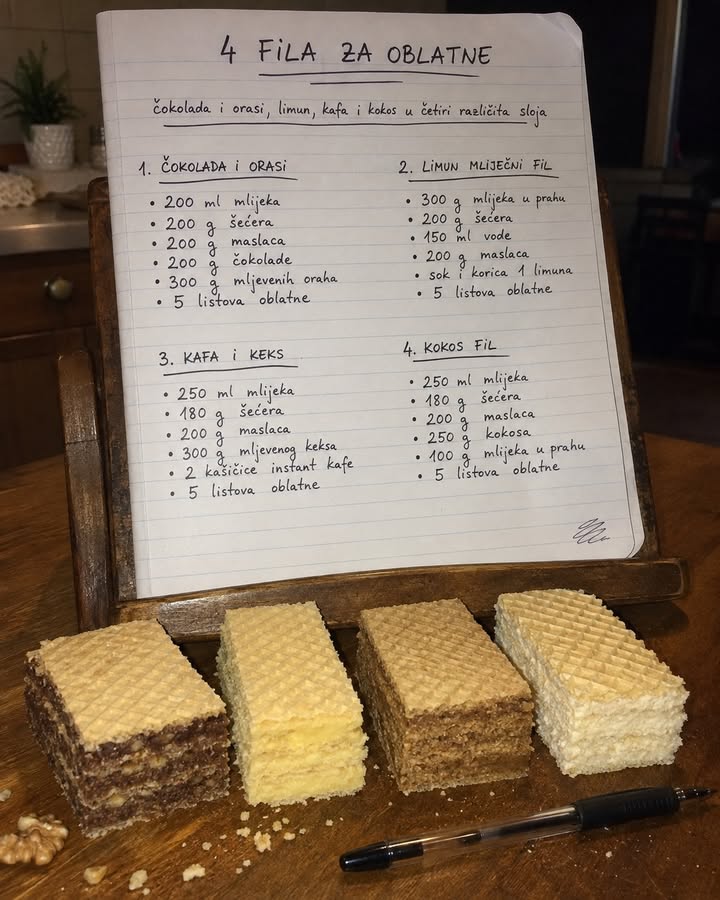 4 FiLA ZA OBLATNE
čokolada i orasi, limun, kafa i kokos u četiri različita sloja
1. ČOKOLADA i ORASi
• 200 ml mlijeka
• 200 g šećera
• 200 g maslaca
• 200 g čokolade
• 300 g mljevenih oraha
• 5 listova oblatne
2. LiMUN MLiJEČNi FiL
• 300 g mlijeka u prahu
• 200 g šećera
• 150 ml vode
• 200 g maslaca
• sok i korica 1 limuna
• 5 listova oblatne
3. KAFA i KEKS
• 250 ml mlijeka
• 180 g šećera
• 200 g maslaca
• 300 g mljevenog keksa
• 2 kašičice instant kafe
• 5 listova oblatne
4. KOKOS FiL
• 250 ml mlijeka
• 180 g šećera
• 200 g maslaca
• 250 g kokosa
• 100 g mlijeka u prahu
• 5 listova oblatne